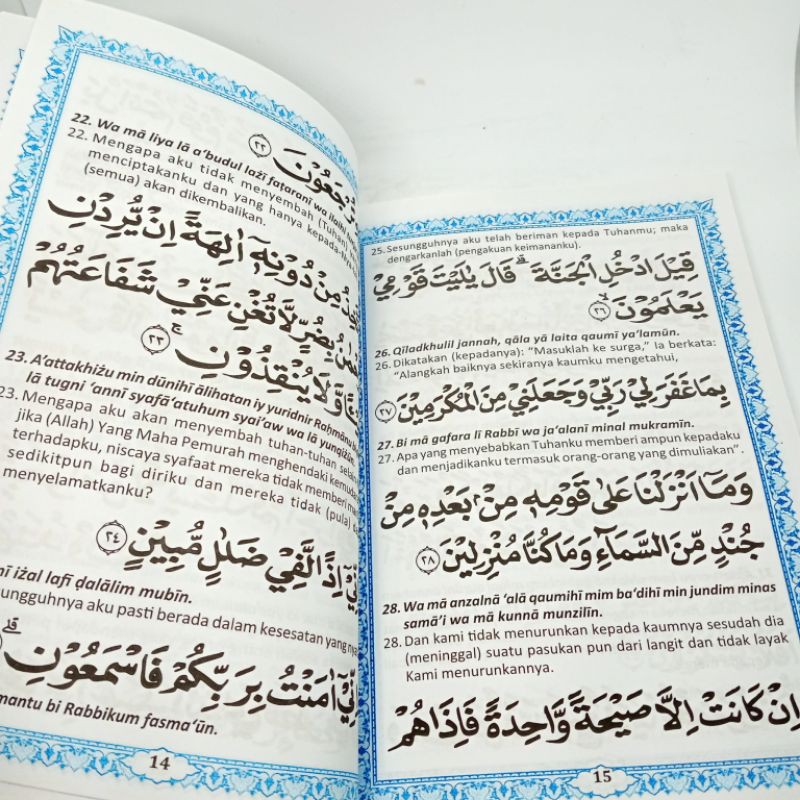 تُرْجَعُوْنَ ٢٢
22. Wa mā liya lā a‘budul lażī faṭaranī wa ilaihi
22. Mengapa aku tidak menyembah (Tuhan)
menciptakanku dan yang hanya kepada-Nya
(semua) akan dikembalikan.
مِنْ دُوْنِهٖٓ اٰلِهَةً اِنْ يُّرِدْنِ
بِضُرٍّ لَّا تُغْنِ عَنِّيْ شَفَاعَتُهُمْ
وَّلَا يُنْقِذُوْنِ ۚ ٢٣
23. A'attakhiżu min dūnihī ālihatan iy yuridnir Raḥmānu
lā tugni ‘annī syafā‘atuhum syai'aw wa lā yunqiżūn.
23. Mengapa aku akan menyembah tuhan-tuhan
jika (Allah) Yang Maha Pemurah menghendaki
terhadapku, niscaya syafaat mereka tidak memberi
sedikitpun bagi diriku dan mereka tidak (pula)
menyelamatkanku?
اِذًا لَّفِيْ ضَلٰلٍ مُّبِيْنٍ ٢٤
iżal lafī ḍalālim mubīn.
aku pasti berada dalam kesesatan yang
اٰمَنْتُ بِرَبِّكُمْ فَاسْمَعُوْنِ ۗ
bi Rabbikum fasma‘ūn.
14
25. Sesungguhnya aku telah beriman kepada Tuhanmu; maka
dengarkanlah (pengakuan keimananku).
قِيْلَ ادْخُلِ الْجَنَّةَ ۗ قَالَ يٰلَيْتَ قَوْمِيْ
يَعْلَمُوْنَ ۙ ٢٦
26. Qīladkhulil jannah, qāla yā laita qaumī ya‘lamūn.
26. Dikatakan (kepadanya): “Masuklah ke surga,” Ia berkata:
“Alangkah baiknya sekiranya kaumku mengetahui,
بِمَا غَفَرَ لِيْ رَبِّيْ وَجَعَلَنِيْ مِنَ الْمُكْرَمِيْنَ ٢٧
27. Bi mā gafara lī Rabbī wa ja‘alanī minal mukramīn.
27. Apa yang menyebabkan Tuhanku memberi ampun kepadaku
dan menjadikanku termasuk orang-orang yang dimuliakan”.
وَمَآ اَنْزَلْنَا عَلٰى قَوْمِهٖ مِنْۢ بَعْدِهٖ مِنْ
جُنْدٍ مِّنَ السَّمَاۤءِ وَمَا كُنَّا مُنْزِلِيْنَ ٢٨
28. Wa mā anzalnā ‘alā qaumihī mim ba‘dihī min jundim minas
samā'i wa mā kunnā munzilīn.
28. Dan kami tidak menurunkan kepada kaumnya sesudah dia
(meninggal) suatu pasukan pun dari langit dan tidak layak
Kami menurunkannya.
اِنْ كَانَتْ اِلَّا صَيْحَةً وَّاحِدَةً فَاِذَا هُمْ
15